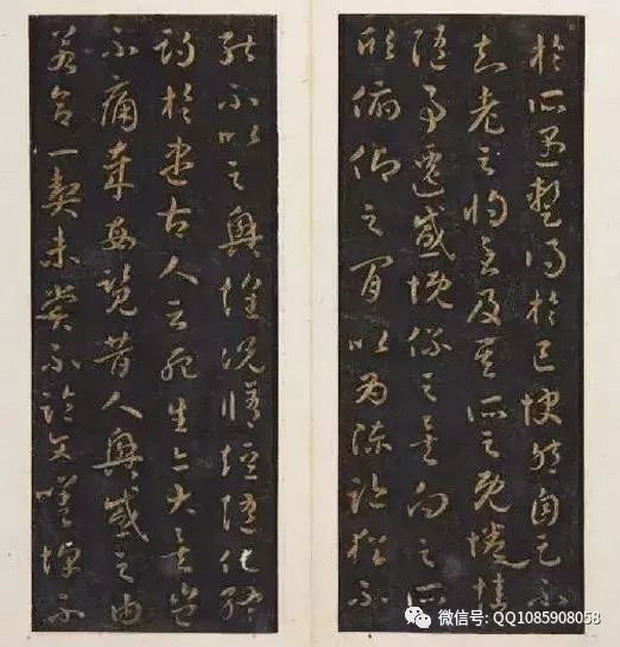 於所遇暫得於己快然自足不
知老之將至及其所之既惓情
隨事遷感慨係之矣向之所
欣俯仰之間以為陳跡猶不
能不以之興懷況脩短隨化終
期於盡古人云死生亦大矣豈
不痛哉每覽昔人興感之由
若合一契未嘗不臨文嗟悼不
微信号: QQ1085908058